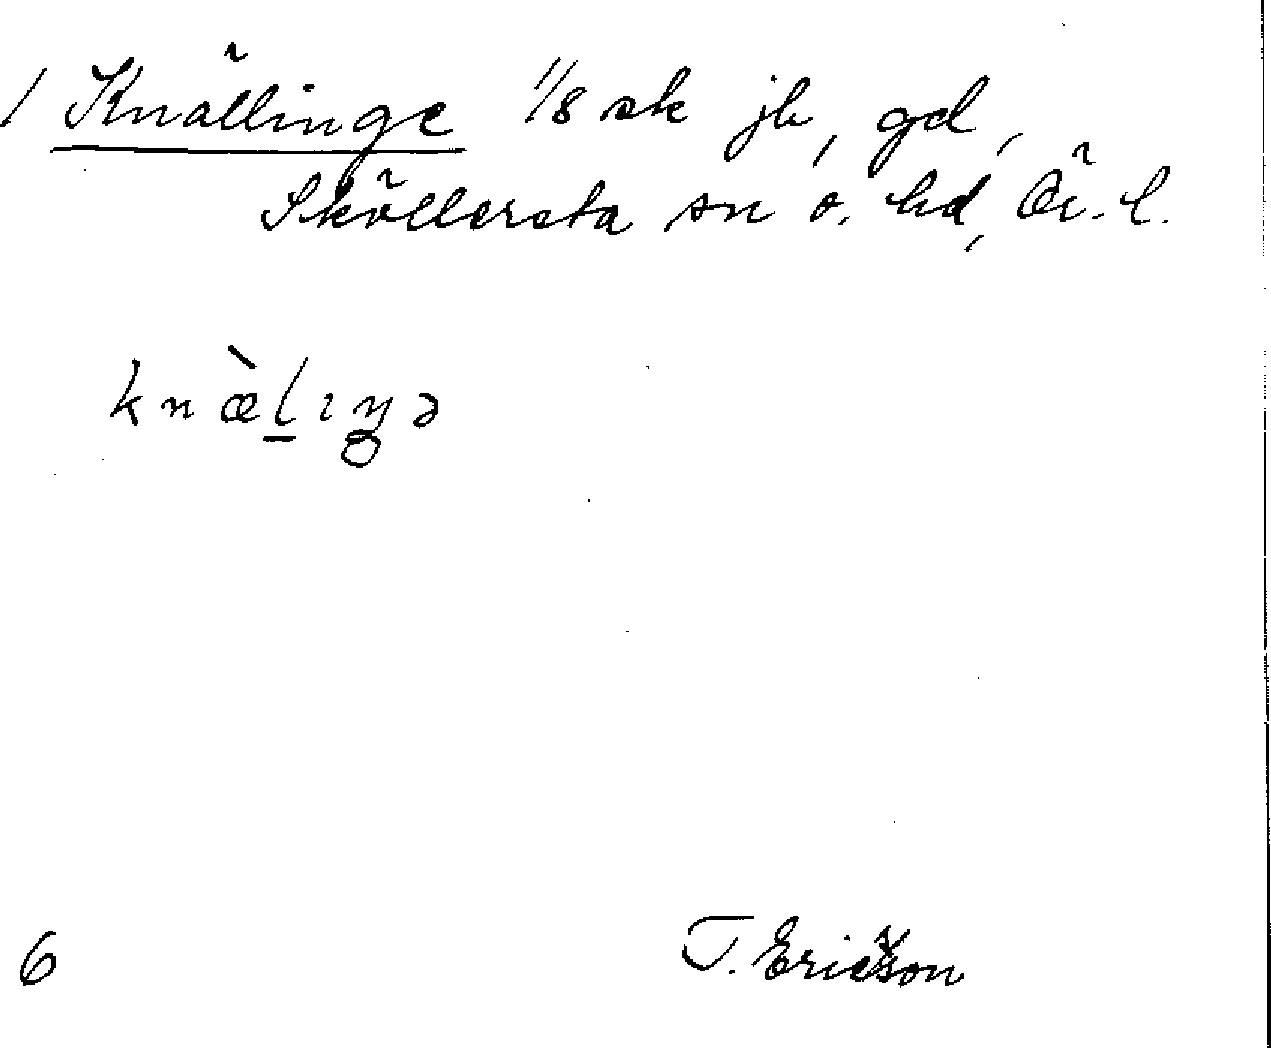 / Knällinge 1/8 sk jb, gd,
Sköllersta sn o. hd, Ör. l.
knæ̀l̲ıŋə
6
T. Ericsson